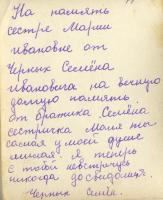 На память
сестре Марии
ивановне от
Черных Семёна
Ивановича на вечную
долгую память
от братика Семёна
сестричка Маня ты
самая у моей душе
милая. Я теперь
с тобой невстречусь
никогда досвидания.
Черных Семён.